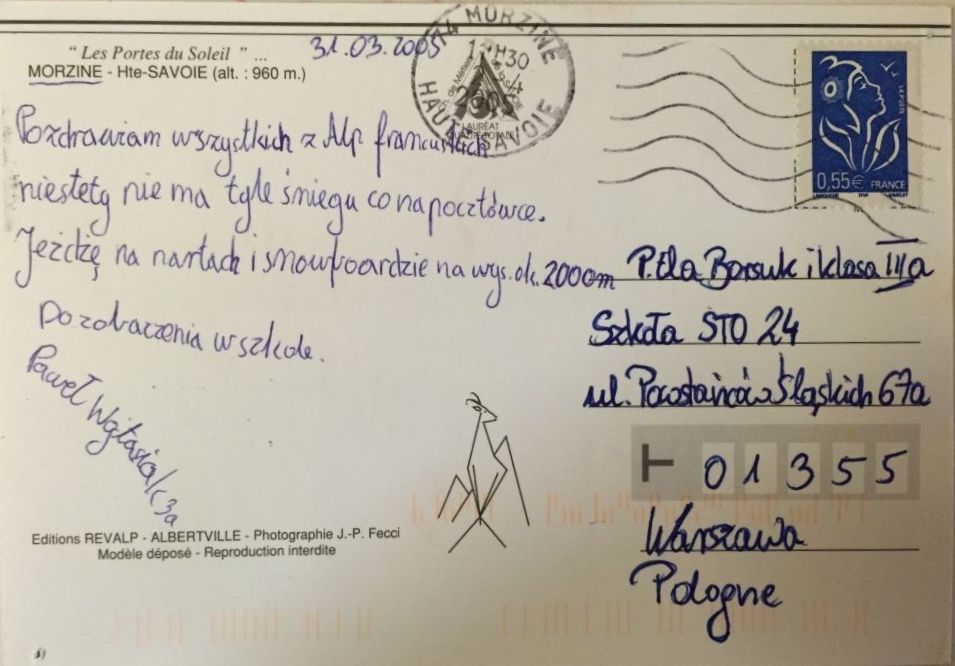 " Les Portes du Soleil " ...
MORZINE - Hte-SAVOIE (alt. : 960 m.)
31.03.2005
74 MORZINE
HAUTE SAVOIE
LAURÉAT
0,55€ FRANCE
LA POSTE
Pozdrawiam wszystkich z Alp francuskich
niestety nie ma tyle śniegu co na pocztówce.
Jeżdżę na nartach i snowboardzie na wys. ok. 2000m
Do zobaczenia w szkole.
Paweł 3a
P. Ela Borsuk i klasa IIIa
Szkoła STO 24
ul. Powstańców Śląskich 67a
01355
Warszawa
Pologne
Editions REVALP - ALBERTVILLE - Photographie J.-P. Fecci
Modèle déposé - Reproduction interdite